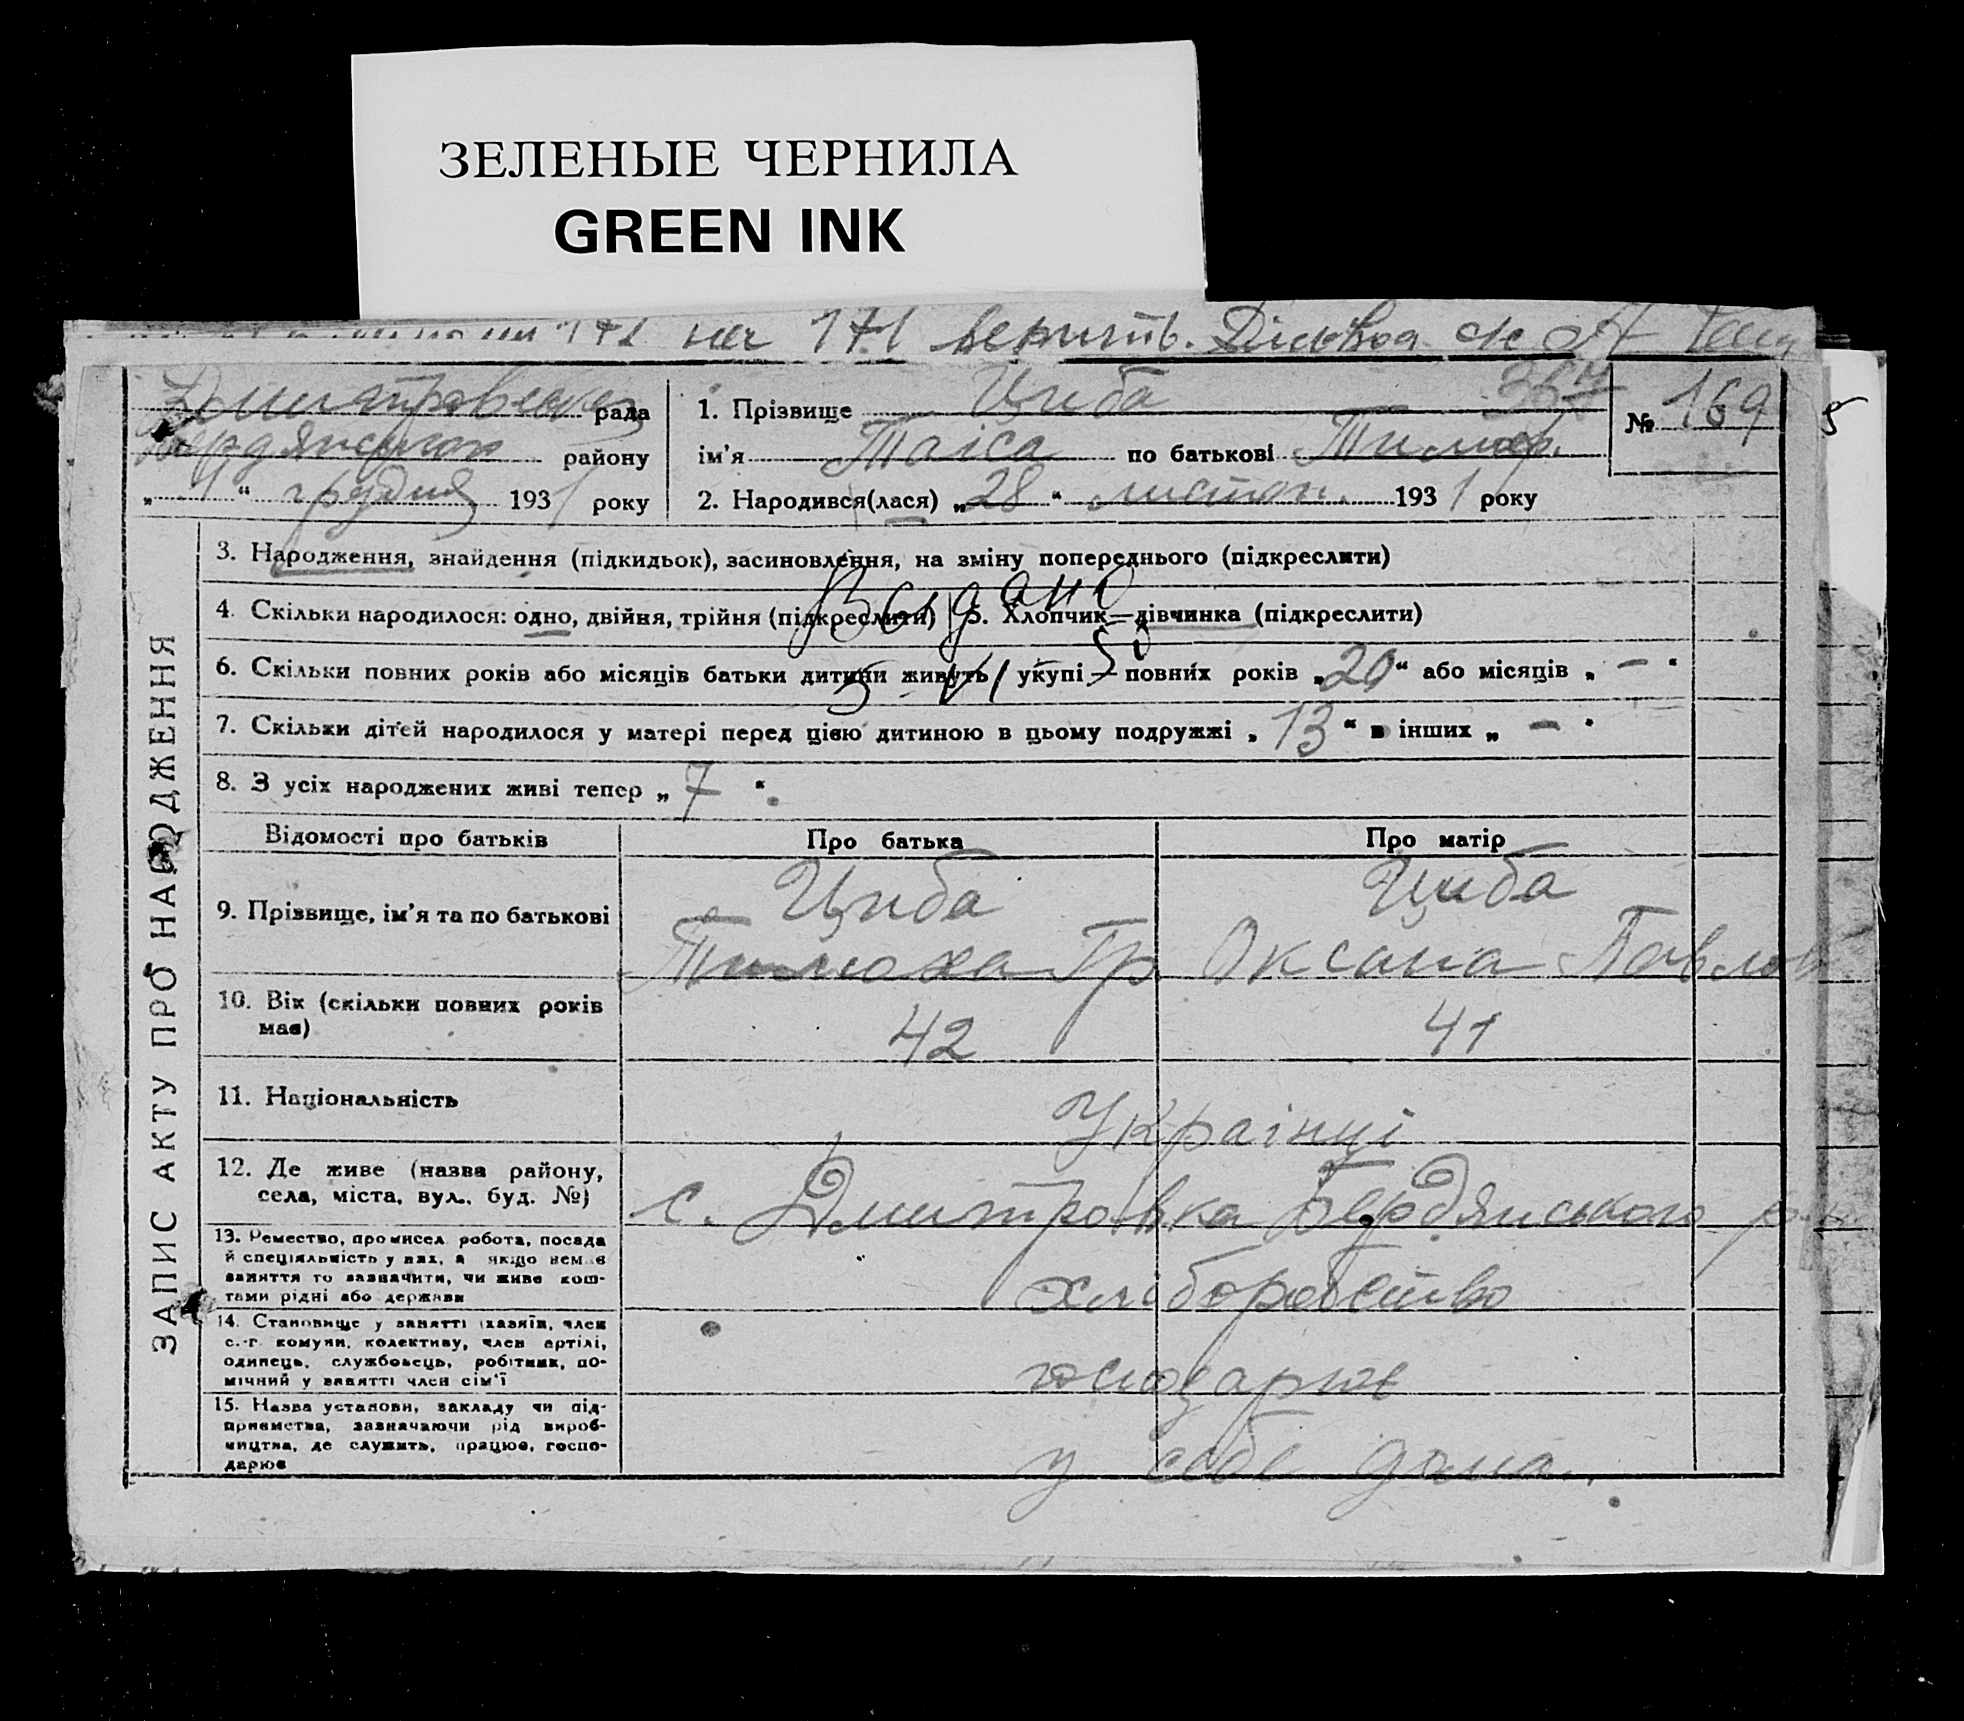 ЗЕЛЕНЫЕ ЧЕРНИЛА
GREEN INK
171 на 171
Дмитровська рада
Бердянського району
„ 1 “ грудня 1931 року
1. Прізвище Циба
ім'я Таіса по батькові Тимоф.
2. Народився(лася) „28“ листоп. 1931 року
№ 169
ЗАПИС АКТУ ПРО НАРОДЖЕННЯ
3. Народження, знайдення (підкидьок), засиновлення, на зміну попереднього (підкреслити)
4. Скільки народилося: одно, двійня, трійня (підкреслити) 5. Хлопчик—дівчинка (підкреслити)
Выдано
6. Скільки повних років або місяців батьки дитини живуть укупі — повних років „20“ або місяців „ — “
5 VI 50
7. Скільки дітей народилося у матері перед цією дитиною в цьому подружжі „ 13 “ в інших „ — “
8. З усіх народжених живі тепер „ 7 “.
Відомості про батьків Про батька Про матір
9. Прізвище, ім'я та по батькові
Циба Циба
Тимоха Гр. Оксана Павлов
10. Вік (скільки повних років має)
42 41
11. Національність
Українці
12. Де живе (назва району, села, міста, вул., буд. №)
с. Дмитровка Бердянського р-н
13. Ремество, промисел, робота, посада
й спеціяльність у них, а якщо немає
заняття то зазначити, чи живе кош-
тами рідні або держави
хліборобство
14. Становище у занятті (хазяїн, член
с.-г. комуни, колективу, член артілі,
одинець, службовець, робітник, по-
мічний у занятті член сім'ї
господарює
15. Назва установи, закладу чи під-
приємства, зазначаючи рід вироб-
ництва, де служить, працює, госпо-
дарює
у себе дома.